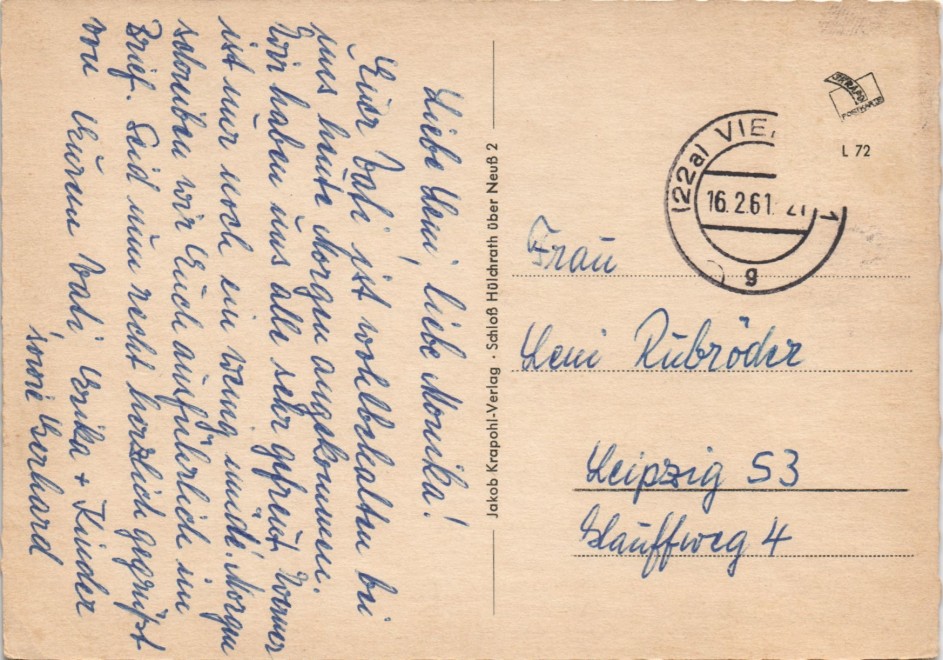 Liebe Leni, liebe Monika!
Euer Vati ist wohlbehalten bei
uns heute Morgen angekommen.
Wir haben uns alle sehr gefreut. Werner
ist nur noch ein wenig müde. Morgen
schreiben wir Euch ausführlich im
Brief. Seid nun recht herzlich gegrüßt
von Eurem Vati, Erika + Kinder
sowie Gerhard
Jakob Krapohl-Verlag · Schloß Hülchrath über Neuß 2
KRAPO
POSTKARTE
L 72
(22a) VIE
16.2.61. 21
1
g
Frau
Leni Rubröder
Leipzig S3
Hauffweg 4